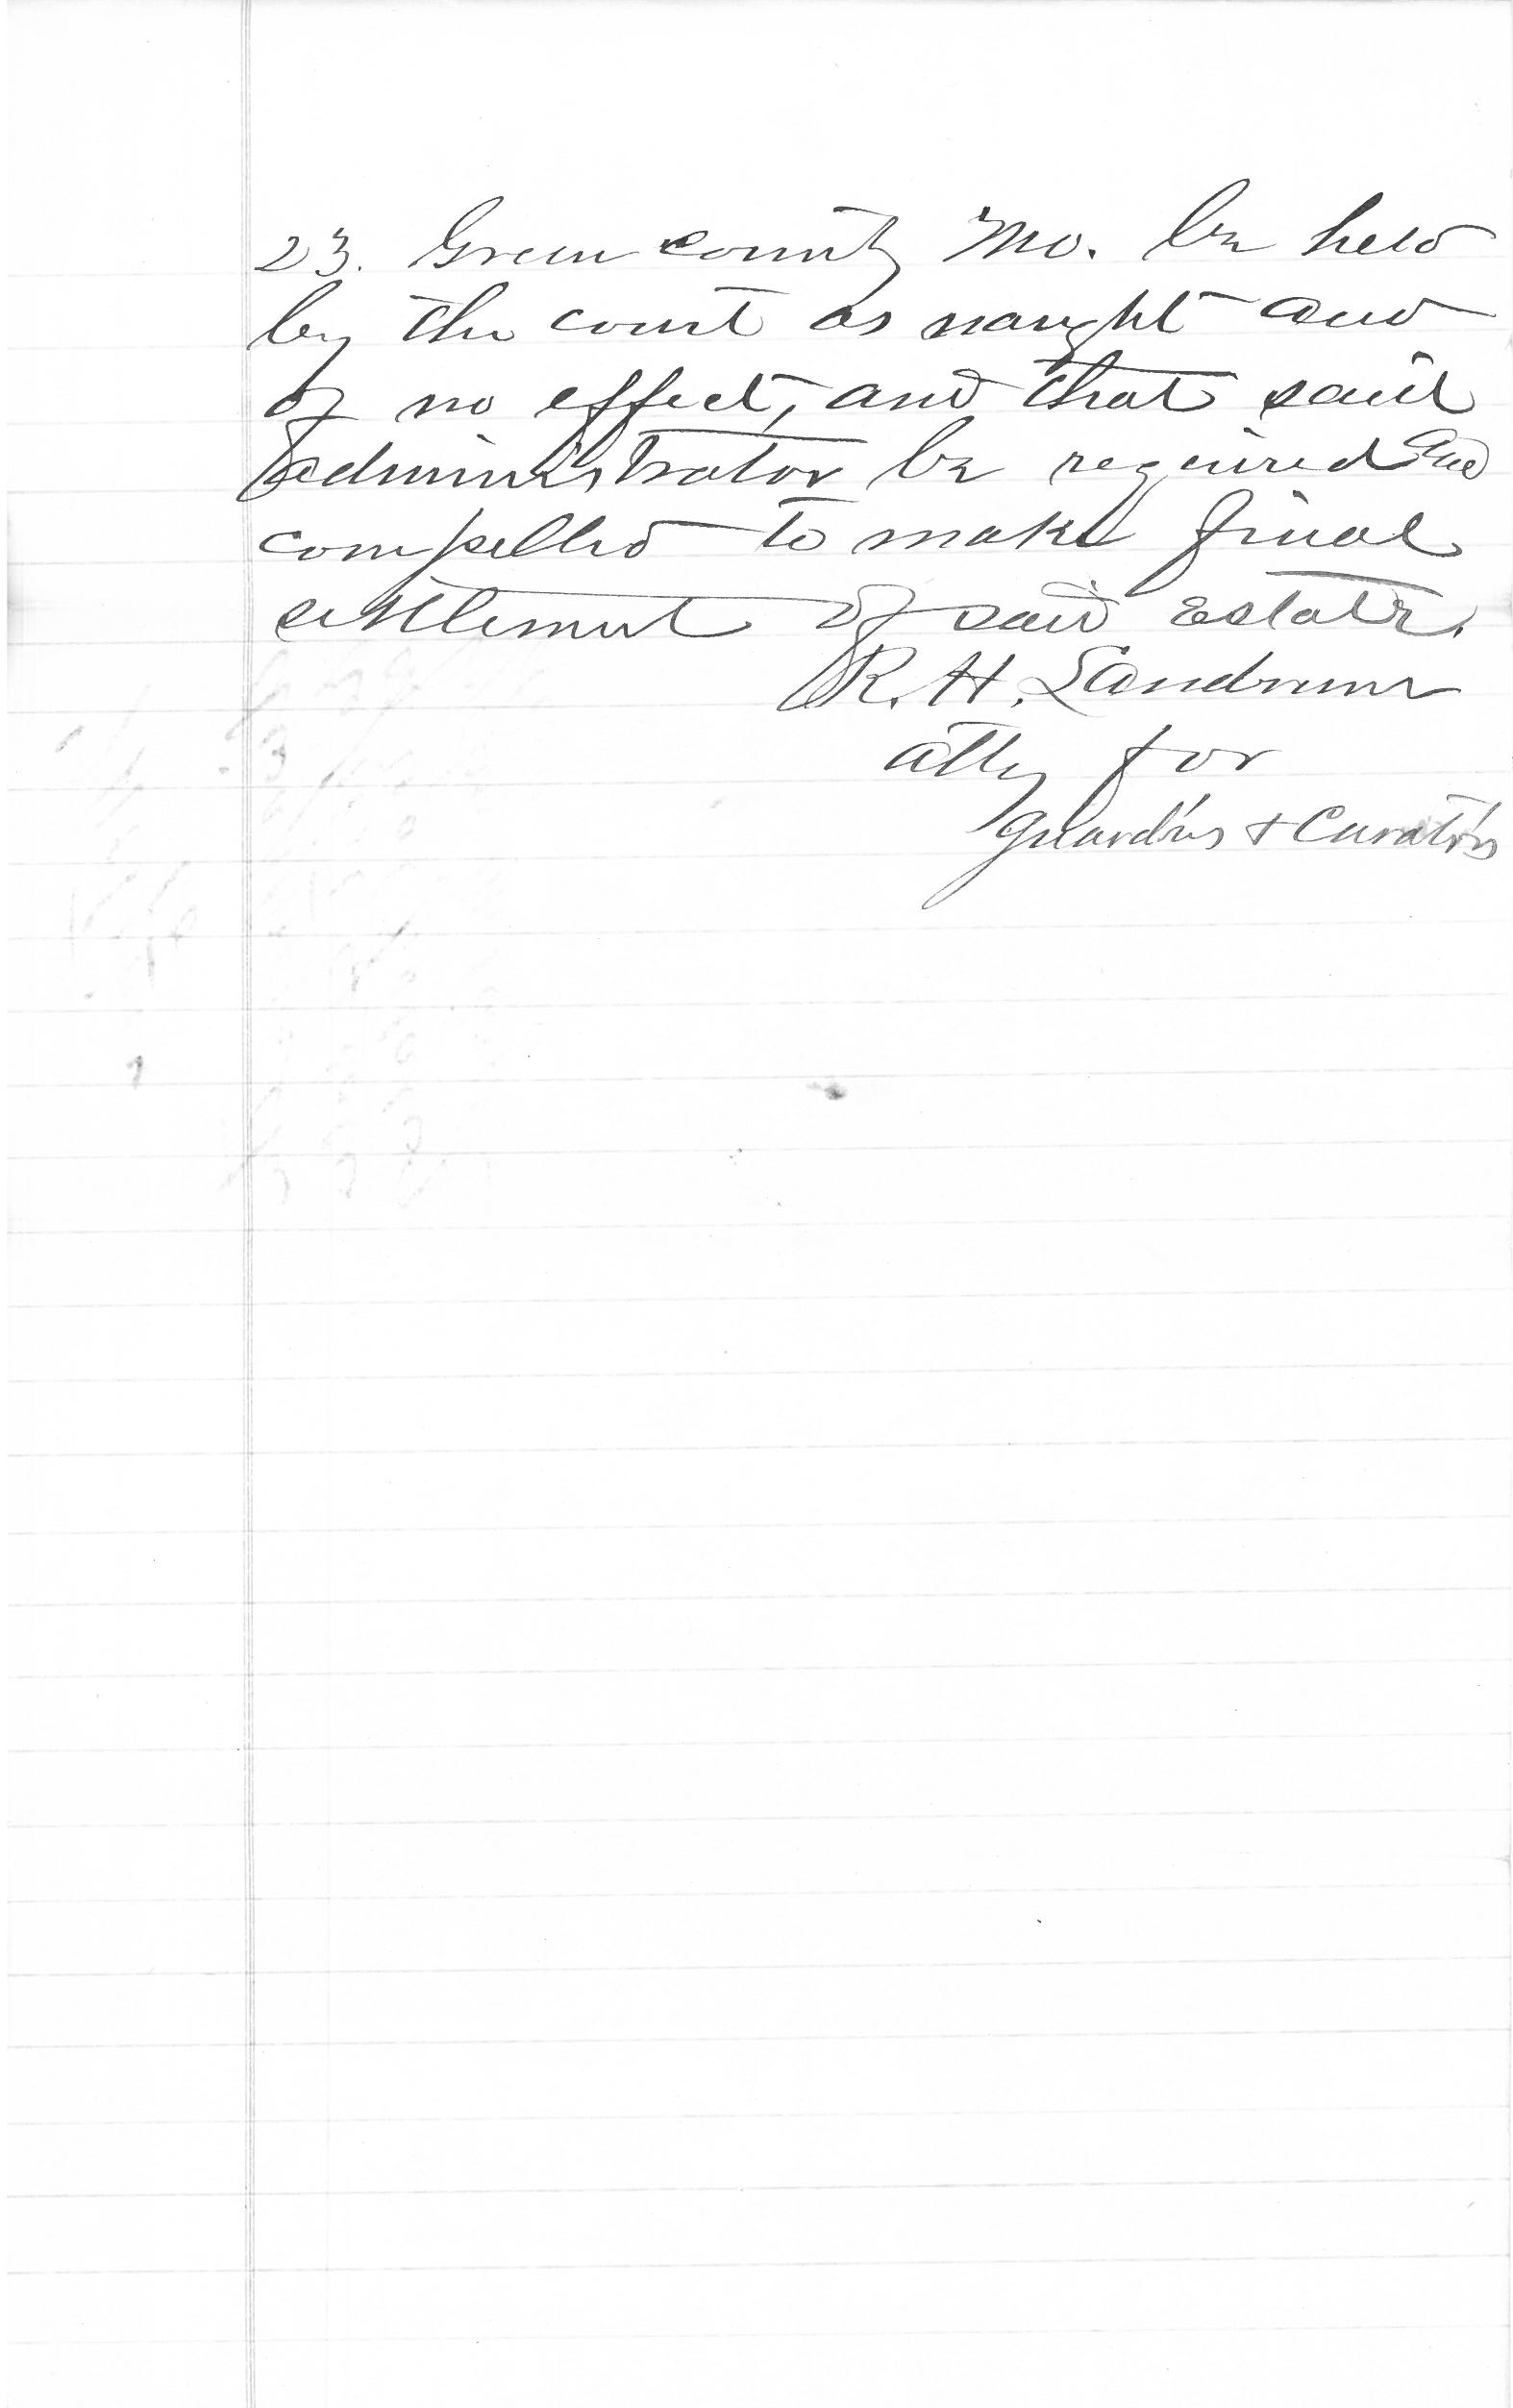 23. Green county Mo. be held
by the court as naught and
of no effect, and that said
administrator be required and
compelled to make final
settlement of said Estate.
R. H. Landrum
atty for
Guard'ns + Curat'rs